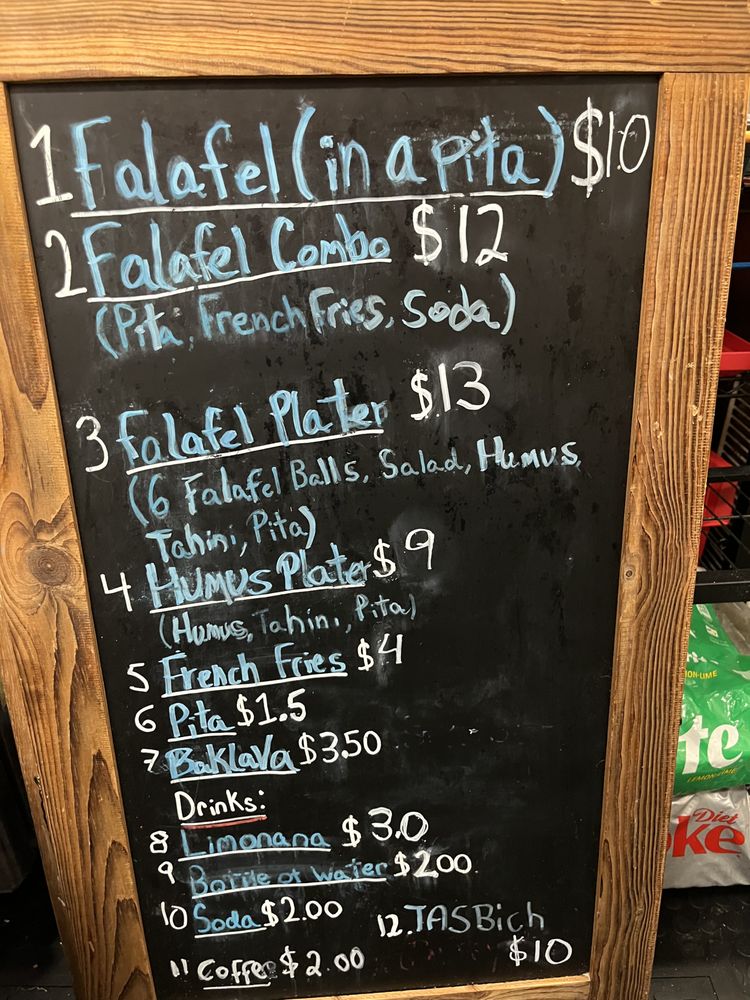 1 Falafel (in a pita) $10
2 Falafel Combo $12
(Pita, French Fries, Soda)
3 Falafel Plater $13
(6 Falafel Balls, Salad, Humus,
Tahini, Pita)
4 Humus Plater $9
(Humus, Tahini, Pita)
5 French Fries $4
6 Pita $1.5
7 Baklava $3.50
Drinks:
8 Limonana $3.0
9 Bottle of Water $2.00
10 Soda $2.00
12. TASBich
$10
11 Coffe $2.00
te
LEMON-LIME
Diet
ke